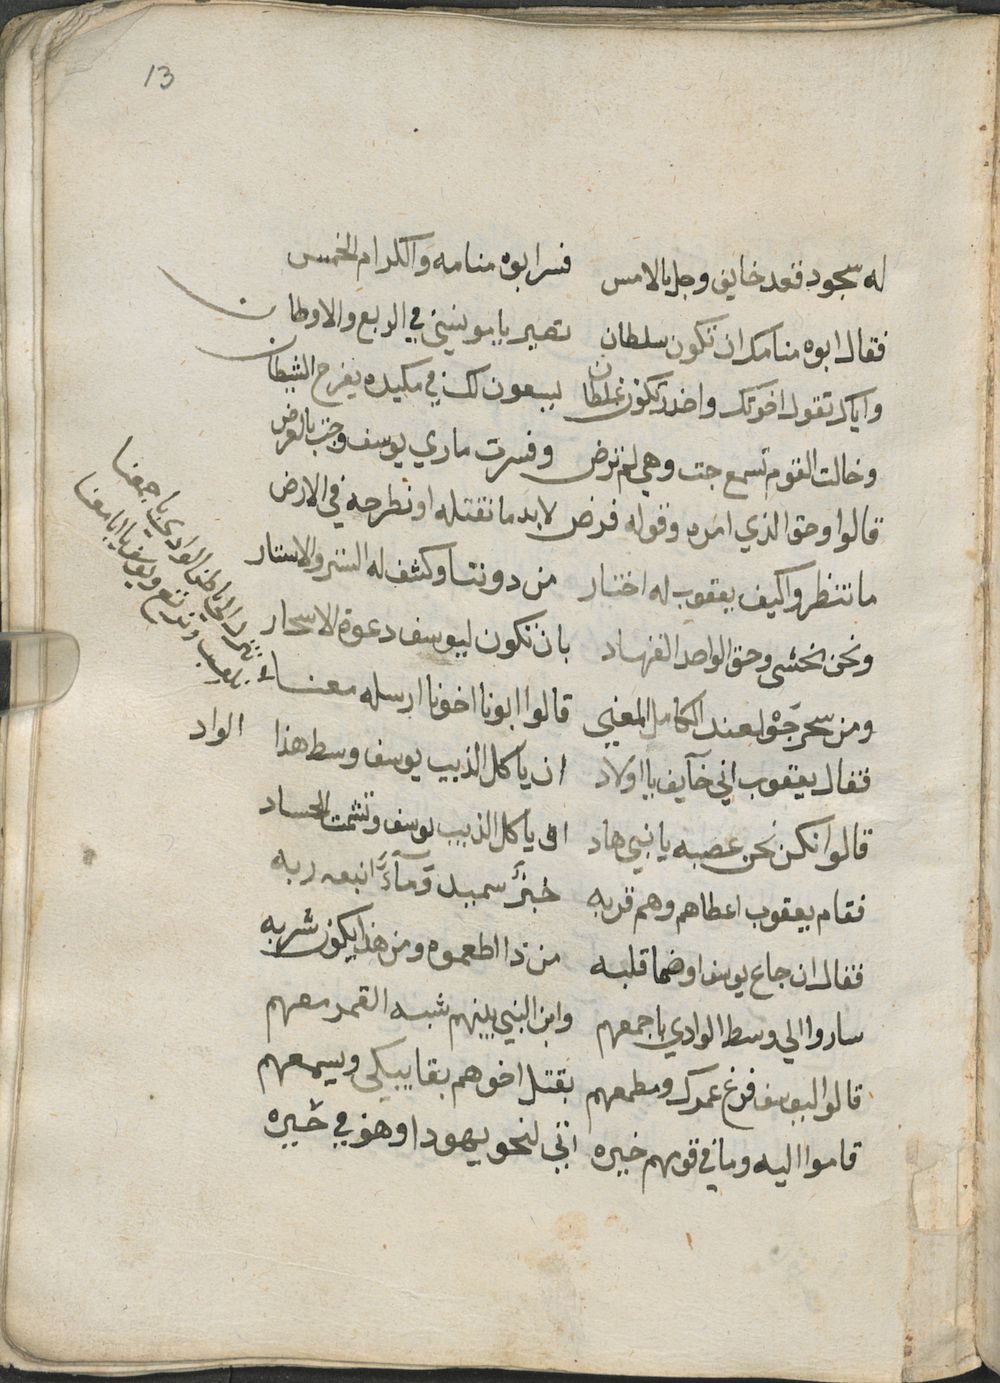 13
له سجود قعد خايف وجل بالامس فسر ابوه منامه والكرام الخمس
فقال ابوه منامك ان تكون سلطان تصير يا يوسف في الربع والاوطان
واياك تقول اخوتك واحذر تكون غلطان يسعون لك في مكيده يفرح الشيطان
وخالت القوم تسمع جت وهي لم ترض وفسرت ماري يوسف وجت بالغرض
قالوا وحق الذي امره وقوله فرض لابد ما نقتله او نطرحه في الارض
ما تنظروا كيف يعقوب له اختار من دوننا وكشف له الستر والاستار
ونحن نخشى وحق الواحد القهار بان تكون ليوسف دعوة الاسحار
ومن سحر جو لعند الكامل المعني قالوا ابونا اخونا ارسله معنا
في نرد الى باطن الوادي باجمعنا
يلعب ويرتع يوسف يا ابا معنا
فقال يعقوب اني خايف يا اولاد ان ياكل الذيب يوسف وسط هذا الواد
قالوا نكن نحن عصبه يا نبي هاد انى ياكل الذيب يوسف وتشمت الحساد
فقام يعقوب اعطاهم وهم قربه خبزً سميد ومآءً انبعه ربه
فقال ان جاع يوسف او ضما قلبه من ذا اطعموه ومن هذا يكون شربه
ساروا الي وسط الوادي باجمعهم وابن النبي بينهم شبه القمر معهم
قالوا ليوسف فرغ عمرك ومطمعهم بقتل اخوهم بقا يبكي ويسمعهم
قاموا اليه وما في قومهم خيره اتى لنحو يهودا وهو في حيره